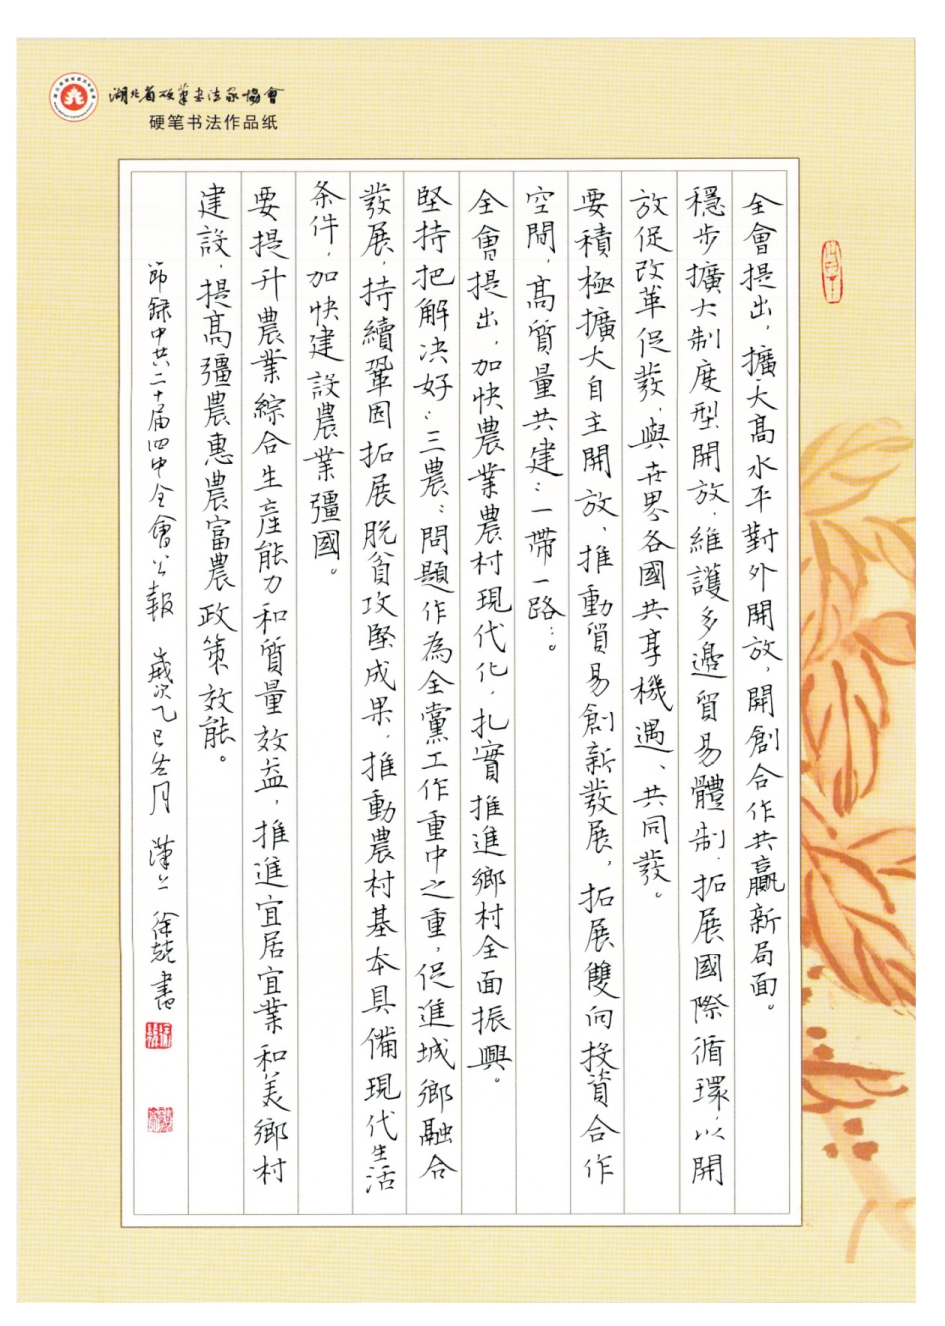 湖北省硬筆書法家協會
硬笔书法作品纸
全會提出，擴大高水平對外開放，開創合作共贏新局面。
穩步擴大制度型開放，維護多邊貿易體制，拓展國際循環，以開
放促改革促發，與世界各國共享機遇、共同發。
要積極擴大自主開放，推動貿易創新發展，拓展雙向投資合作
空間，高質量共建“一帶一路”。
全會提出，加快農業農村現代化，扎實推進鄉村全面振興。
堅持把解决好“三農”問題作為全黨工作重中之重，促進城鄉融合
發展，持續鞏固拓展脱貧攻堅成果，推動農村基本具備現代生活
条件，加快建設農業彊國。
要提升農業綜合生産能力和質量效益，推進宜居宜業和美鄉村
建設，提高彊農惠農富農政策效能。
節録中共二十届四中全會公報 歲次乙巳冬月 漢上 徐兢書